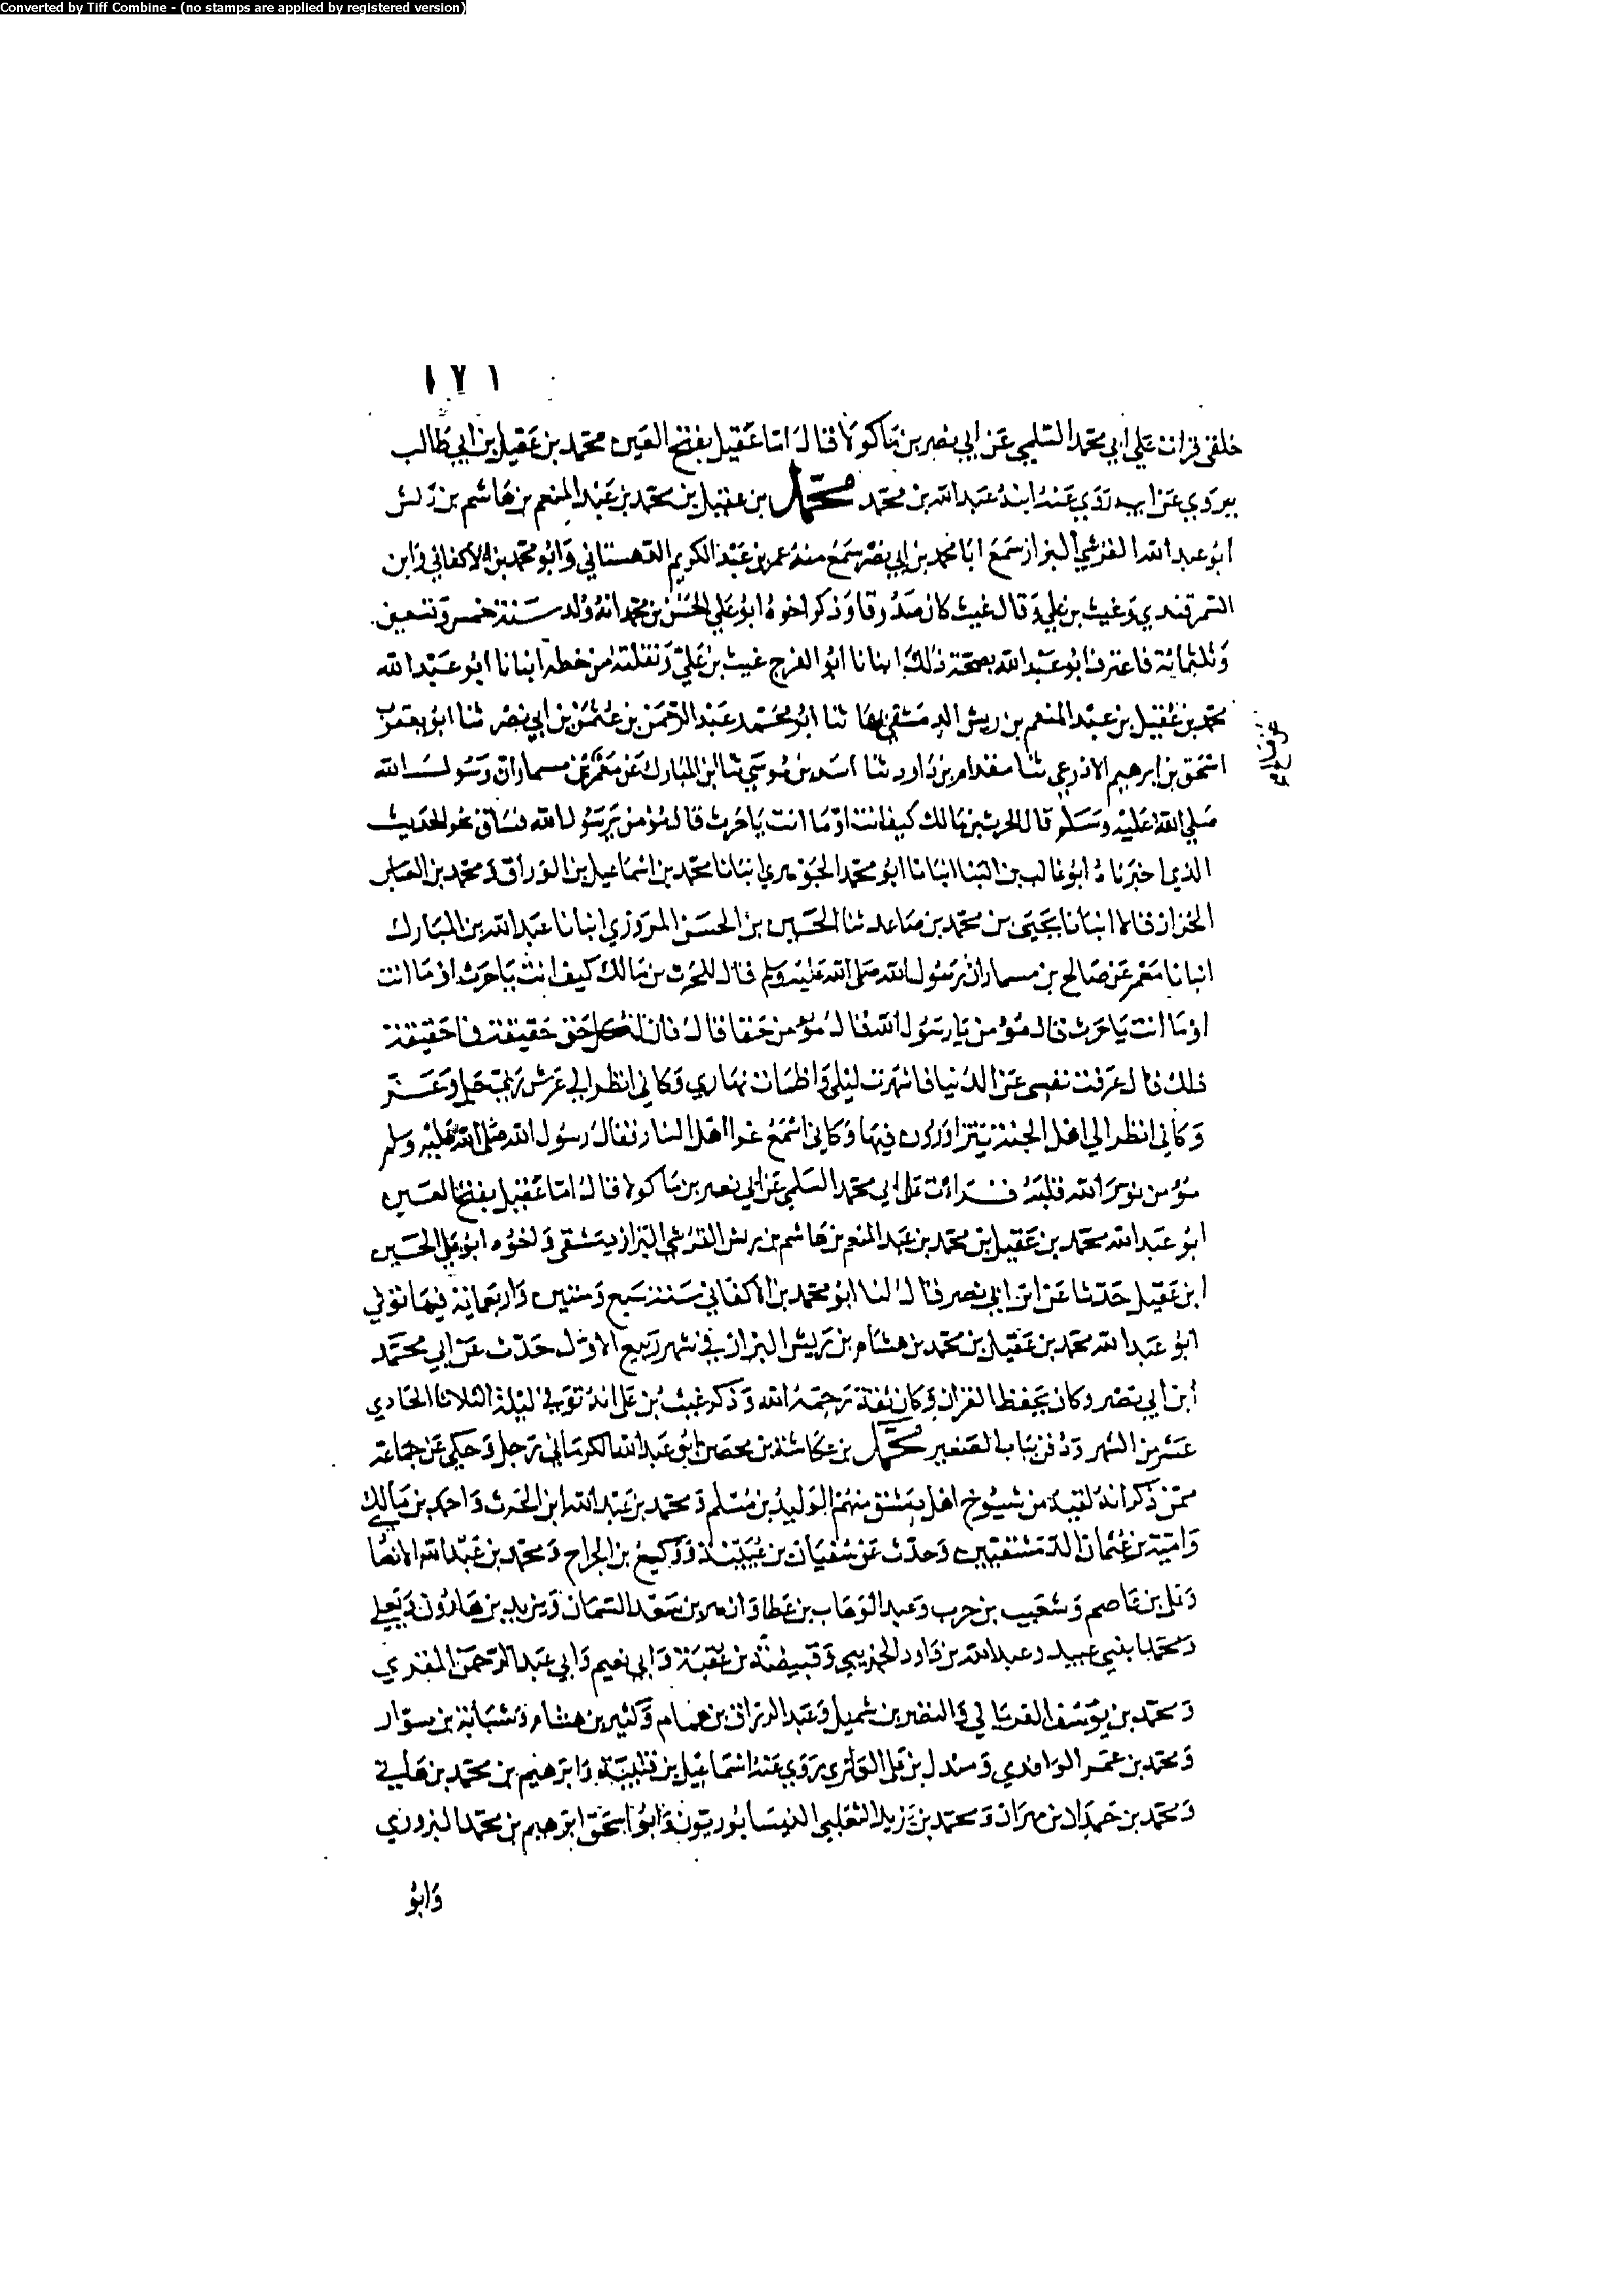 Converted by Tiff Combine - (no stamps are applied by registered version)
١٧١
خلفى قرات على ابي محمد السلمي عن ابي نصر بن ماكولا قال اما عقيل بفتح العين محمد بن عقيل بن ابي طالب
يروي عن ابيه روي عنه ابنه عبد الله بن محمد محمد بن عقيل بن محمد بن عبد المنعم بن هاشم بن ريش
ابو عبد الله القرشي البزاز سمع ابا محمد بن ابي نصر سمع منه عمر بن عبد الكريم الدهستاني وابو محمد بن الاكفاني وابن
السمرقندي وغيث بن علي وقال غيث كان صدوقا وذكر اخوه ابو علي الحسن بن محمد انه ولد سنة خمس وتسعين
وثلثمائة فاعترف ابو عبد الله بصحة ذلك انبانا ابو الفرج غيث بن علي ونقلته من خطه انبانا ابو عبد الله
محمد بن عقيل بن عبد المنعم بن ريش الدمشقي بها ثنا ابو محمد عبد الرحمن بن عثمن بن ابي نصر ثنا ابو يعقوب
اسحق بن ابرهيم الاذرعي ثنا مقدام بن داود ثنا اسد بن موسى ثنا ابن المبارك عن معمر عن مسمار ان رسول الله
صلي الله عليه وسلم قال للحرث بن مالك كيف انت او ما انت يا حرث قال مؤمن يرسول الله فساق نحو الحديث
الذي اخبرناه ابو غالب بن البنا انبانا ابو محمد الجوهري انبانا محمد بن اسماعيل بن الوراق ومحمد بن العباس
الخزاز قالا انبانا يحيى بن محمد بن صاعد ثنا الحسين بن الحسن المروزي انبانا عبد الله بن المبارك
انبانا معمر عن صالح بن مسمار ان رسول الله صلى الله عليه وسلم قال للحرث بن مالك كيف انت يا حرث او ما انت
او ما انت يا حرث قال مؤمن يا رسول الله قال مؤمن حقا قال فان لكل حق حقيقة فما حقيقة
ذلك قال عزفت نفسي عن الدنيا فاسهرت ليلي واظمات نهاري وكاني انظر الي عرش ربي جل وعز
وكاني انظر الي اهل الجنة يتزاورون فيها وكاني اسمع عوا اهل النار فقال رسول الله صلى الله عليه وسلم
مؤمن نور الله قلبه قرات على ابي محمد السلمي عن ابي نصر بن ماكولا قال اما عقيل بفتح العين
ابو عبد الله محمد بن عقيل بن محمد بن عبد المنعم بن هاشم بن ريش القرشي البزاز دمشقي واخوه ابو علي الحسين
ابن عقيل حدثنا عن ابن ابي نصر قال لنا ابو محمد بن الاكفاني سنة سبع وستين واربعمائة فيها توفي
ابو عبد الله محمد بن عقيل بن محمد بن هشام بن ريش البزاز في شهر ربيع الاول حدث عن ابي محمد
ابن ابي نصر وكان يحفظ القران وكان ثقة رحمه الله وذكر غيث بن علي انه توفي ليلة الثلاثا الحادي
عشر من الشهر ودفن بباب الصغير محمد بن عكاشة بن محصن ابو عبد الله الكرماني رجل وحكي عن جماعة
ممن ذكر انه لقيه من شيوخ اهل دمشق منهم الوليد بن مسلم ومحمد بن عبد الله ابن الحرث واحمد بن مالك
وامية بن عثمان الدمشقيين وحدث عن سفيان بن عيينة ووكيع بن الجراح ومحمد بن عبد الله الانصا
وعلي بن عاصم وشعيب بن حرب وعبد الوهاب بن عطا وازهر بن سعد السمان ويزيد بن هارون ويعلي
ومحمد ابني عبيد وعبد الله بن داود الخريبي وقبيصة بن عقبة وابي نعيم وابي عبد الرحمن المقري
ومحمد بن يوسف الفريابي والنضر بن شميل وعبد الرزاق بن همام وكثير بن هشام وشبابة بن سوار
ومحمد بن عمر الواقدي ومندل بن علي روي عنه اسماعيل بن قتيبة وابرهيم بن محمد بن هاني
ومحمد بن حمد بن مهران ومحمد بن يزيد النيسابوريون وابو اسحق ابرهيم بن محمد
وابو